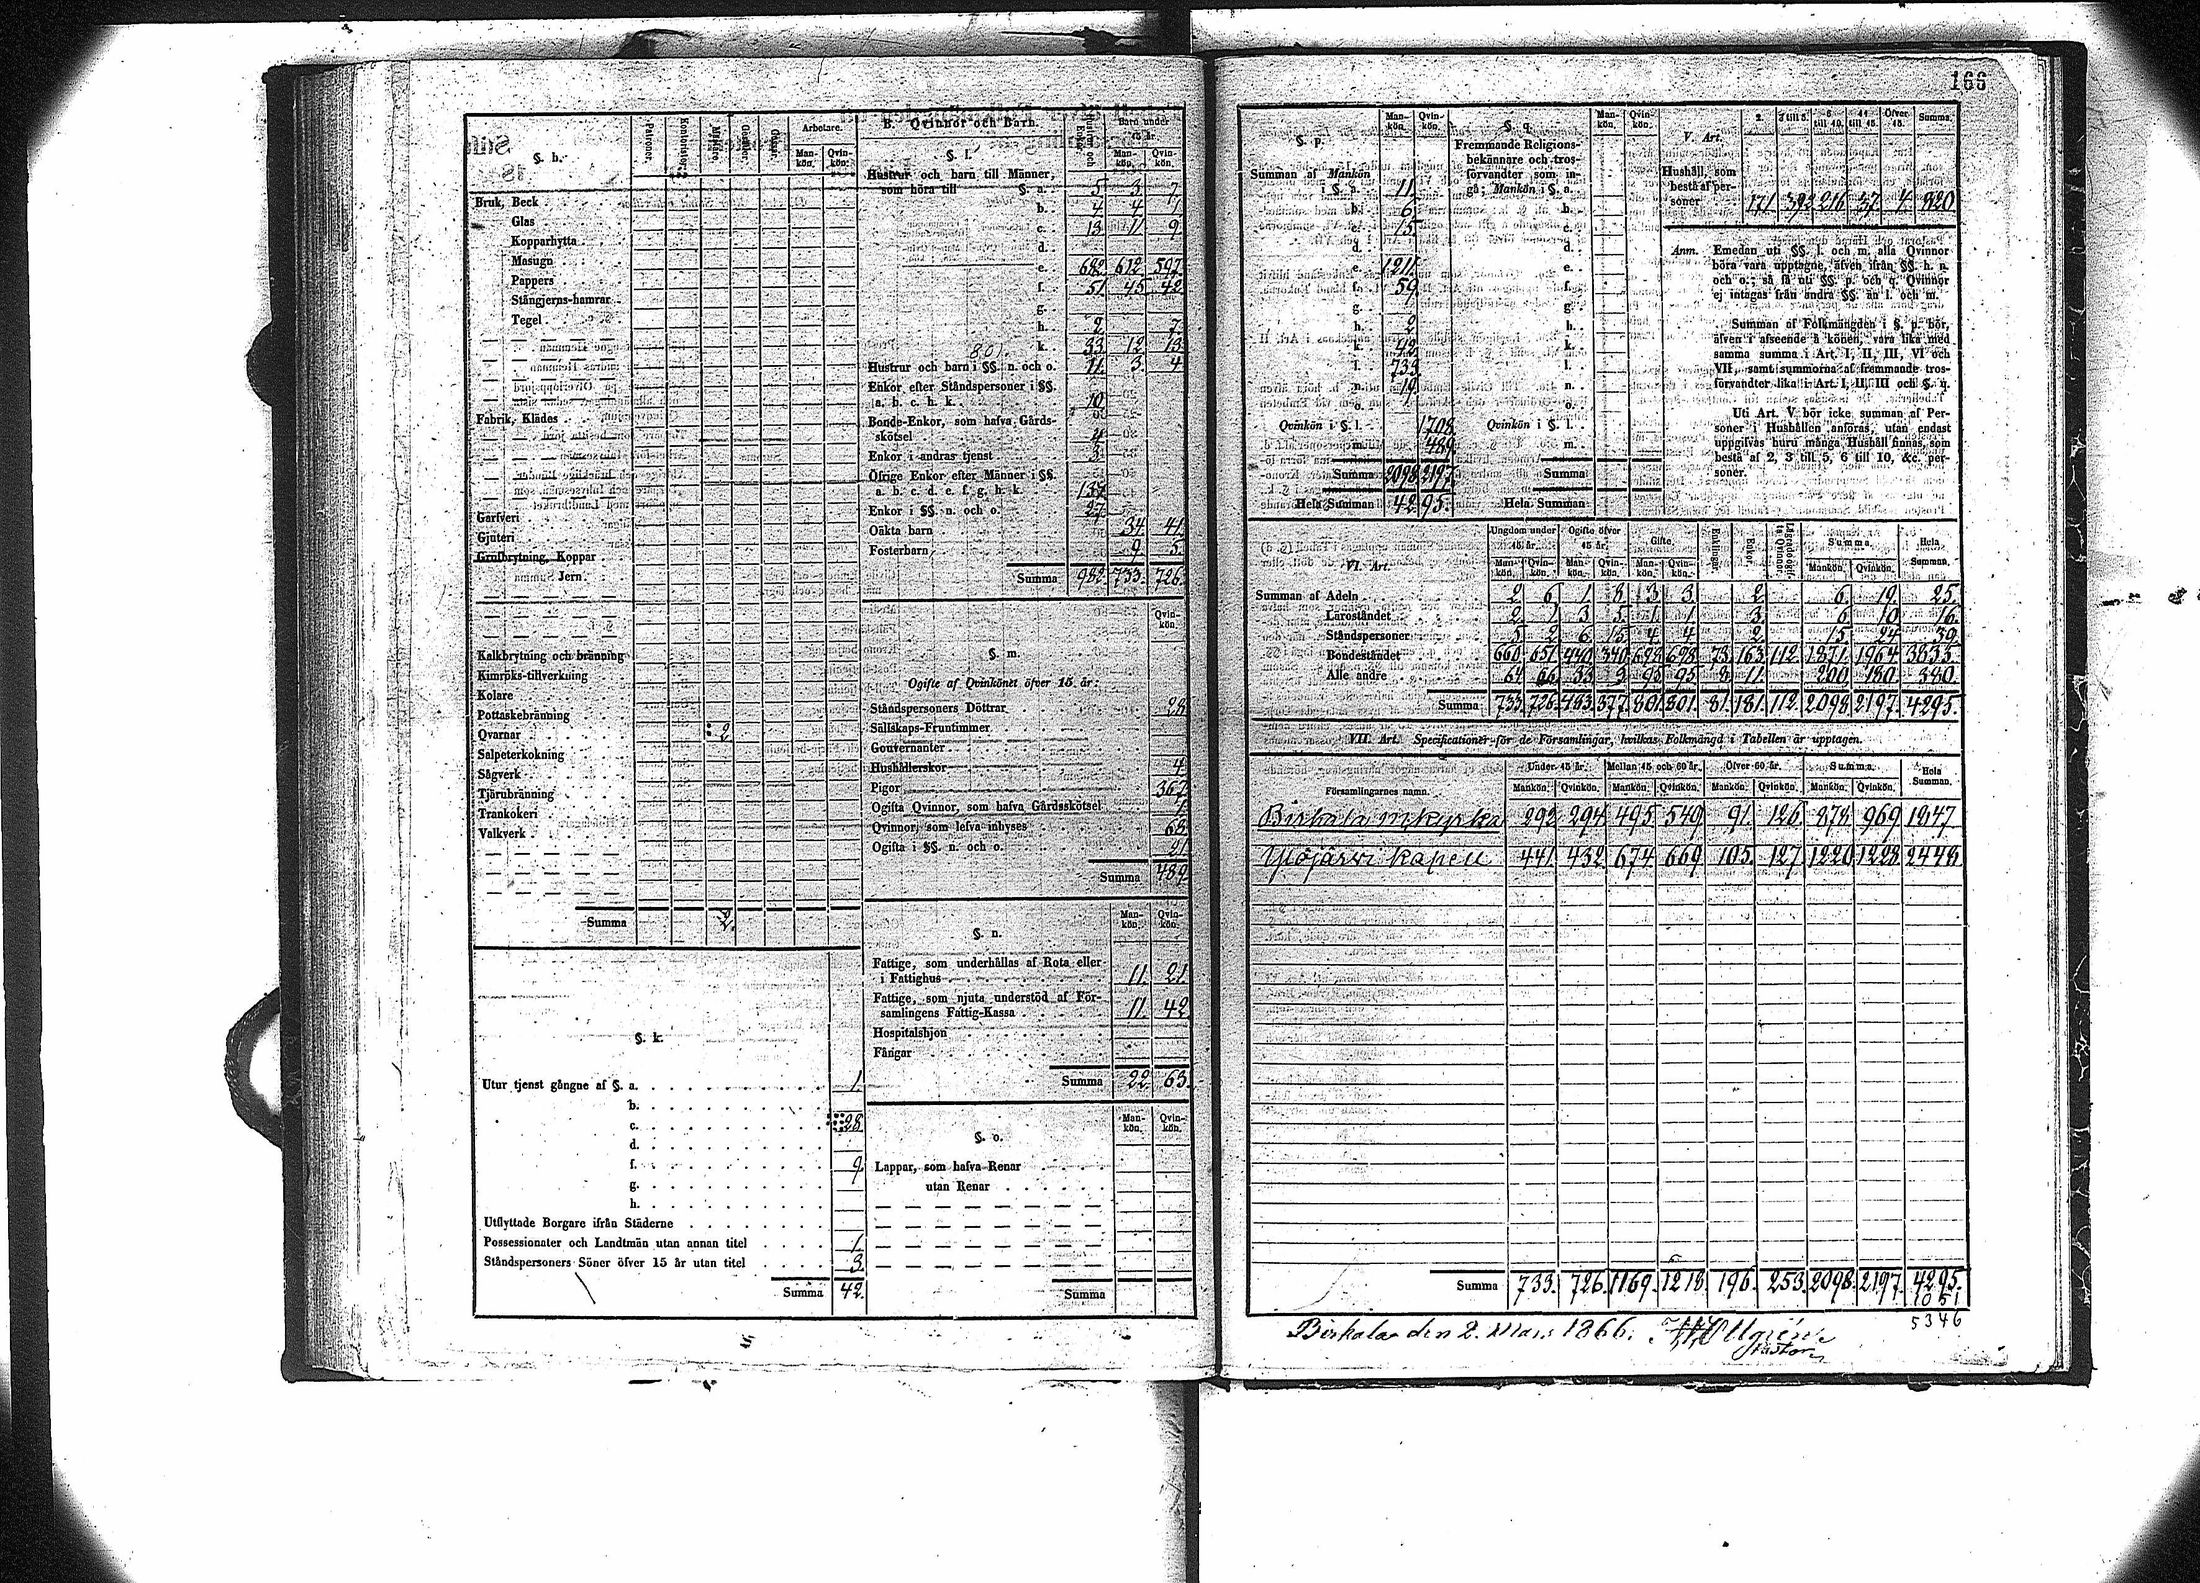 166
§. h.
Patroner.
Kontorister.
Mästare
Gesäller.
Gossar.
Arbetare.
Man-kön.
Qvin-kön.
Bruk, Beck
Glas
Kopparhytta
Masugn
Pappers
Stångjerns-hamrar
Tegel
Fabrik, Klädes
Garfveri
Gjuteri
Grufbrytning, Koppar
Jern
Kalkbrytning och bränning
Kimröks-tillverkning
Kolare
Pottaskebränning
Qvarnar 2
Salpeterkokning
Sågverk
Tjärubränning
Trankokeri
Valkverk
Summa 2.
§. k.
Utur tjenst gångne af §. a. 1.
b.
c. 28
d.
f. 9
g.
h.
Utflyttade Borgare ifrån Städerne
Possessionater och Landtmän utan annan titel 1.
Ståndspersoners Söner öfver 15 år utan titel 3.
Summa 42.
B. Qvinnor och Barn.
§. l.
Hustrur och Enkor.
Barn under 15 år.
Man-kön. Qvin-kön.
Hustrur och barn till Männer,
som höra till §. a. 5 3 7
b. 4 4 1
c. 13 11 9
d.
e. 682 612 597
f. 51 45 42
g.
h. 2 7
801. k. 33 12 13
Hustrur och barn i §§. n. och o. 11. 3. 4
Enkor efter Ståndspersoner i §§.
a. b. c. h. k. 10
Bonde-Enkor, som hafva Gårds-
skötsel 4
Enkor i andras tjenst 3
Öfrige Enkor efter Männer i §§.
a. b. c. d. e. f. g. h. k. 137
Enkor i §§. n. och o. 27
Oäkta barn 34 41
Fosterbarn 9 5
Summa 982. 733. 726
§. m.
Qvin-kön
Ogifte af Qvinkönet öfver 15 år:
Ståndspersoners Döttrar 28
Sällskaps-Fruntimmer
Gouvernanter
Hushållerskor 4
Pigor 367
Ogifta Qvinnor, som hafva Gårdsskötsel 1
Qvinnor, som lefva inhyses 68
Ogifta i §§. n. och o. 21
Summa 489
§. n.
Man-kön. Qvin-kön.
Fattige, som underhållas af Rota eller
i Fattighus 11. 21.
Fattige, som njuta understöd af För-
samlingens Fattig-Kassa 11. 42
Hospitalshjon
Fångar
Summa 22. 63.
§. o.
Man-kön. Qvin-kön.
Lappar, som hafva Renar
utan Renar
Summa
§. p.
Man-kön. Qvin-kön.
Summan af Mankön
i §. a. 11.
b. 6.
c. 15
d.
e. 1211.
f. 59
g.
h. 2
k. 42
l. 733
n. 19
o.
Qvinkön i §. l. 1708
m. 489
Summa 2098 2197
Hela Summan 4295.
§. q.
Man-kön. Qvin-kön.
Fremmande Religions-
bekännare och tros-
förvandter som in-
gå; Mankön i §. a.
b.
c.
d.
e.
f.
g.
h.
k.
l.
n.
o.
Qvinkön i §. l.
m.
Summa
Hela Summan
V. Art.
2. 3 till 5. 6 till 10. 11 till 15. Öfver 15. Summa.
Hushåll, som
bestå af per-
soner 171 392 216 37 4 820
Anm. Emedan uti §§. l. och m. alla Qvinnor
böra vara upptagne, äfven ifrån §§. h. n.
och o.; så få uti §§. p. och q. Qvinnor
ej intagas från andra §§. än l. och m.
Summan af Folkmängden i §. p. bör,
äfven i afseende å könen, vara lika med
samma summa i Art. I, II, III, VI och
VII, samt summorna af fremmande tros-
förvandter lika i Art. I, II, III och §. q.
Uti Art. V bör icke summan af Per-
soner i Hushållen anföras, utan endast
uppgifvas huru många Hushåll finnas, som
bestå af 2, 3 till 5, 6 till 10, &c. per-
soner.
VI. Art.
Ungdom under 15 år. Ogifte öfver 15 år. Gifte. Enklingar. Enkor. Summa. Hela Summan.
Man-kön. Qvin-kön. Man-kön. Qvin-kön. Man-kön. Qvin-kön. Mankön. Qvinkön.
Summan af Adeln 2 6 1 8 3 3 2 6 19 25.
Läroståndet 2 1 3 5 1 1 3 6 10 16.
Ståndspersoner 5 2 6 15 4 4 2 15 24 39
Bondeståndet 660 651 440 340 698 698 73 163 112 1871 1964 3835
Alle andre 64 66 33 9 95 95 8 11 200 180 380
Summa 733. 726. 483. 377. 801. 801. 81. 181. 112. 2098. 2197. 4295.
VII. Art. Specificationer för de Församlingar, hvilkas Folkmängd i Tabellen är upptagen.
Under 15 år. Mellan 15 och 60 år. Öfver 60 år. Summa. Hela Summan.
Församlingarnes namn. Mankön. Qvinkön. Mankön. Qvinkön. Mankön. Qvinkön. Mankön. Qvinkön.
Birkala m kyrka 292 294 495 549 91 126 878 969 1847
Ylöjärvi kapell 441. 432 674 669 105 127 1220 1228 2448
Summa 733. 726. 1169. 1218. 196. 253. 2098. 2197. 4295.
1051
5346
Birkala den 2. Mars 1866.
Pastor